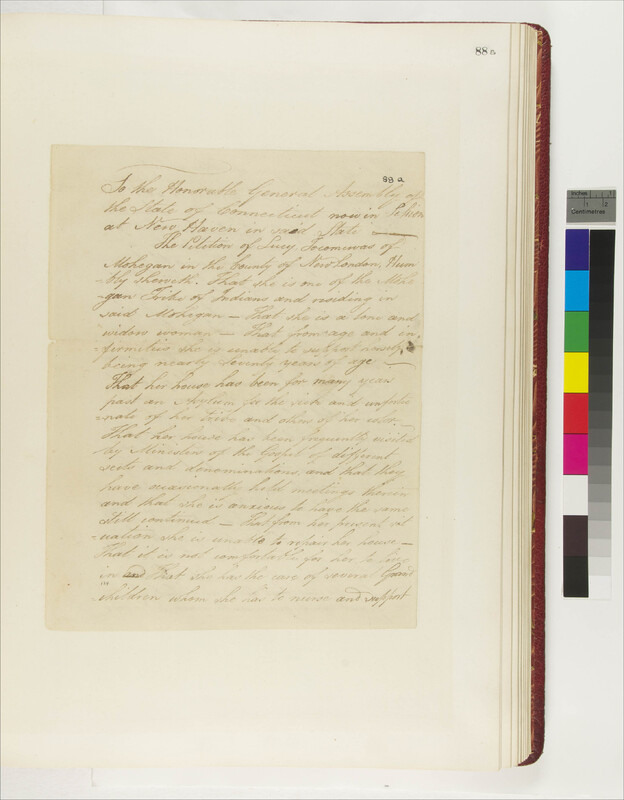 88 a
88 a
To the Honorable General Assembly of
the State of Connecticut now in Session
at New Haven in said State
The Petition of Lucy Tocomwas of
Mohegan in the County of New London, Hum
bly sheweth. That she is one of the Mohe
-gan Tribe of Indians and residing in
said Mohegan — That she is a lone and
widow woman — That from age and in
firmities she is unable to support herself,
being nearly seventy years of age —
That her house has been for many years
past an Asylum for the sick and unfortu
-nate of her tribe and others of her color —
That her house has been frequently visited
by Ministers of the Gospel of different
sects and denominations, and that they
have occasionally held meetings therein
and that she is anxious to have the same
still continued — That from her present sit
-uation she is unable to repair her house —
That it is not comfortable for her to live
in and That she has the care of several Grand
children whom she has to nurse and support
inches 1 2
Centimetres